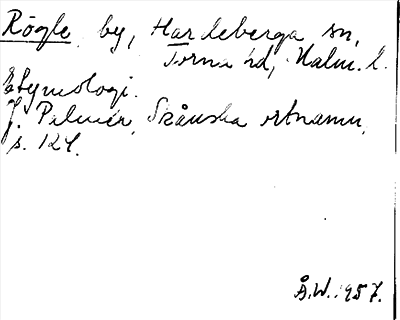 Rögle, by, Hardeberga sn,
Torna hd, Malm. l.
Etymologi.
J. Palmér, Skånska ortnamn,
s. 124.
Å.W. 1957.